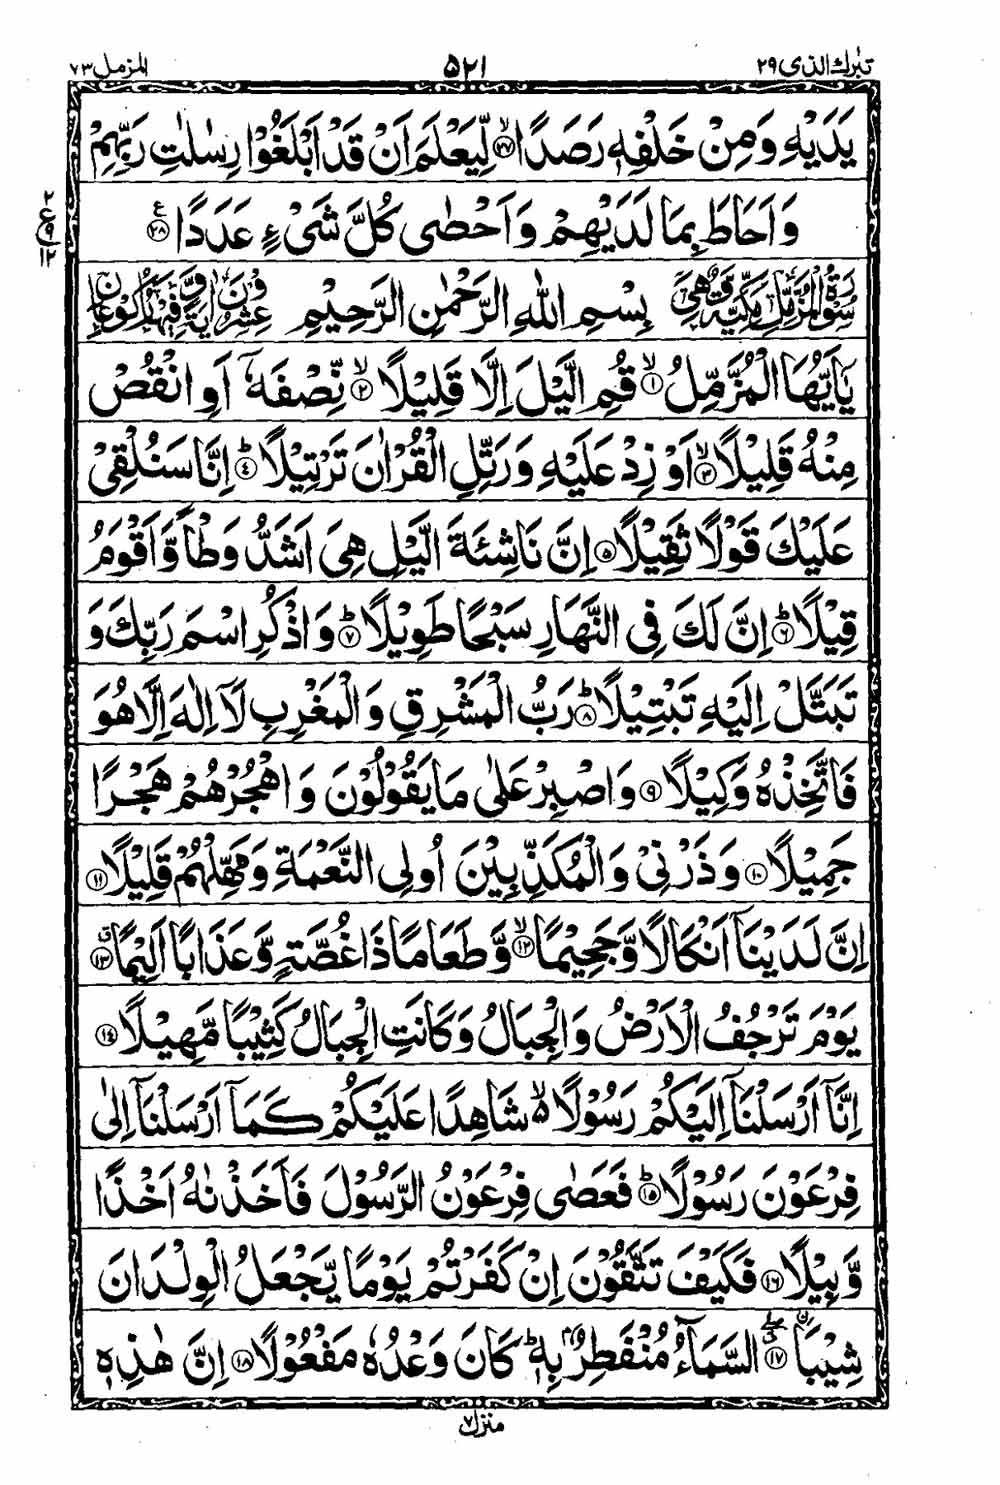 تبٰرك الذى ٢٩
٥٢١
المزمل ٧٣
يَدَيْهِ وَمِنْ خَلْفِهٖ رَصَدًا ۙ‏﴿٢٧﴾‏ لِّيَعْلَمَ اَنْ قَدْ اَبْلَغُوْا رِسٰلٰتِ رَبِّهِمْ
وَاَحَاطَ بِمَا لَدَيْهِمْ وَاَحْصٰى كُلَّ شَىْءٍ عَدَدًا ﴿٢٨﴾ ع
٢
ع
٩
١٢
سُوْرَةُ الْمُزَّمِّلِ مَكِّيَّةٌ وَّهِىَ بِسْمِ اللهِ الرَّحْمٰنِ الرَّحِيْمِ عِشْرُوْنَ اٰيَةً وَّفِيْهَا رُكُوْعَانِ
يٰۤاَيُّهَا الْمُزَّمِّلُ ۙ﴿١﴾ قُمِ الَّيْلَ اِلَّا قَلِيْلًا ۙ﴿٢﴾ نِّصْفَهٗۤ اَوِ انْقُصْ
مِنْهُ قَلِيْلًا ۙ﴿٣﴾ اَوْ زِدْ عَلَيْهِ وَرَتِّلِ الْقُرْاٰنَ تَرْتِيْلًا ؕ﴿٤﴾ اِنَّا سَنُلْقِىْ
عَلَيْكَ قَوْلًا ثَقِيْلًا ﴿٥﴾ اِنَّ نَاشِئَةَ الَّيْلِ هِىَ اَشَدُّ وَطْاً وَّاَقْوَمُ
قِيْلًا ؕ﴿٦﴾ اِنَّ لَكَ فِى النَّهَارِ سَبْحًا طَوِيْلًا ؕ﴿٧﴾ وَاذْكُرِ اسْمَ رَبِّكَ وَ
تَبَتَّلْ اِلَيْهِ تَبْتِيْلًا ؕ﴿٨﴾ رَبُّ الْمَشْرِقِ وَالْمَغْرِبِ لَاۤ اِلٰهَ اِلَّا هُوَ
فَاتَّخِذْهُ وَكِيْلًا ﴿٩﴾ وَاصْبِرْ عَلٰى مَا يَقُوْلُوْنَ وَاهْجُرْهُمْ هَجْرًا
جَمِيْلًا ﴿١٠﴾ وَذَرْنِىْ وَالْمُكَذِّبِيْنَ اُولِى النَّعْمَةِ وَمَهِّلْهُمْ قَلِيْلًا ﴿١١﴾
اِنَّ لَدَيْنَاۤ اَنْكَالًا وَّجَحِيْمًا ۙ﴿١٢﴾ وَّطَعَامًا ذَا غُصَّةٍ وَّعَذَابًا اَلِيْمًا ق﴿١٣﴾
يَوْمَ تَرْجُفُ الْاَرْضُ وَالْجِبَالُ وَكَانَتِ الْجِبَالُ كَثِيْبًا مَّهِيْلًا ﴿١٤﴾
اِنَّاۤ اَرْسَلْنَاۤ اِلَيْكُمْ رَسُوْلًا ۙ۬ شَاهِدًا عَلَيْكُمْ كَمَاۤ اَرْسَلْنَاۤ اِلٰى
فِرْعَوْنَ رَسُوْلًا ؕ﴿١٥﴾ فَعَصٰى فِرْعَوْنُ الرَّسُوْلَ فَاَخَذْنٰهُ اَخْذًا
وَّبِيْلًا ﴿١٦﴾ فَكَيْفَ تَتَّقُوْنَ اِنْ كَفَرْتُمْ يَوْمًا يَّجْعَلُ الْوِلْدَانَ
شِيْبَا ﴿١٧﴾ السَّمَآءُ مُنْفَطِرٌۢ بِهٖ ؕ كَانَ وَعْدُهٗ مَفْعُوْلًا ﴿١٨﴾ اِنَّ هٰذِهٖ
منزل ٧